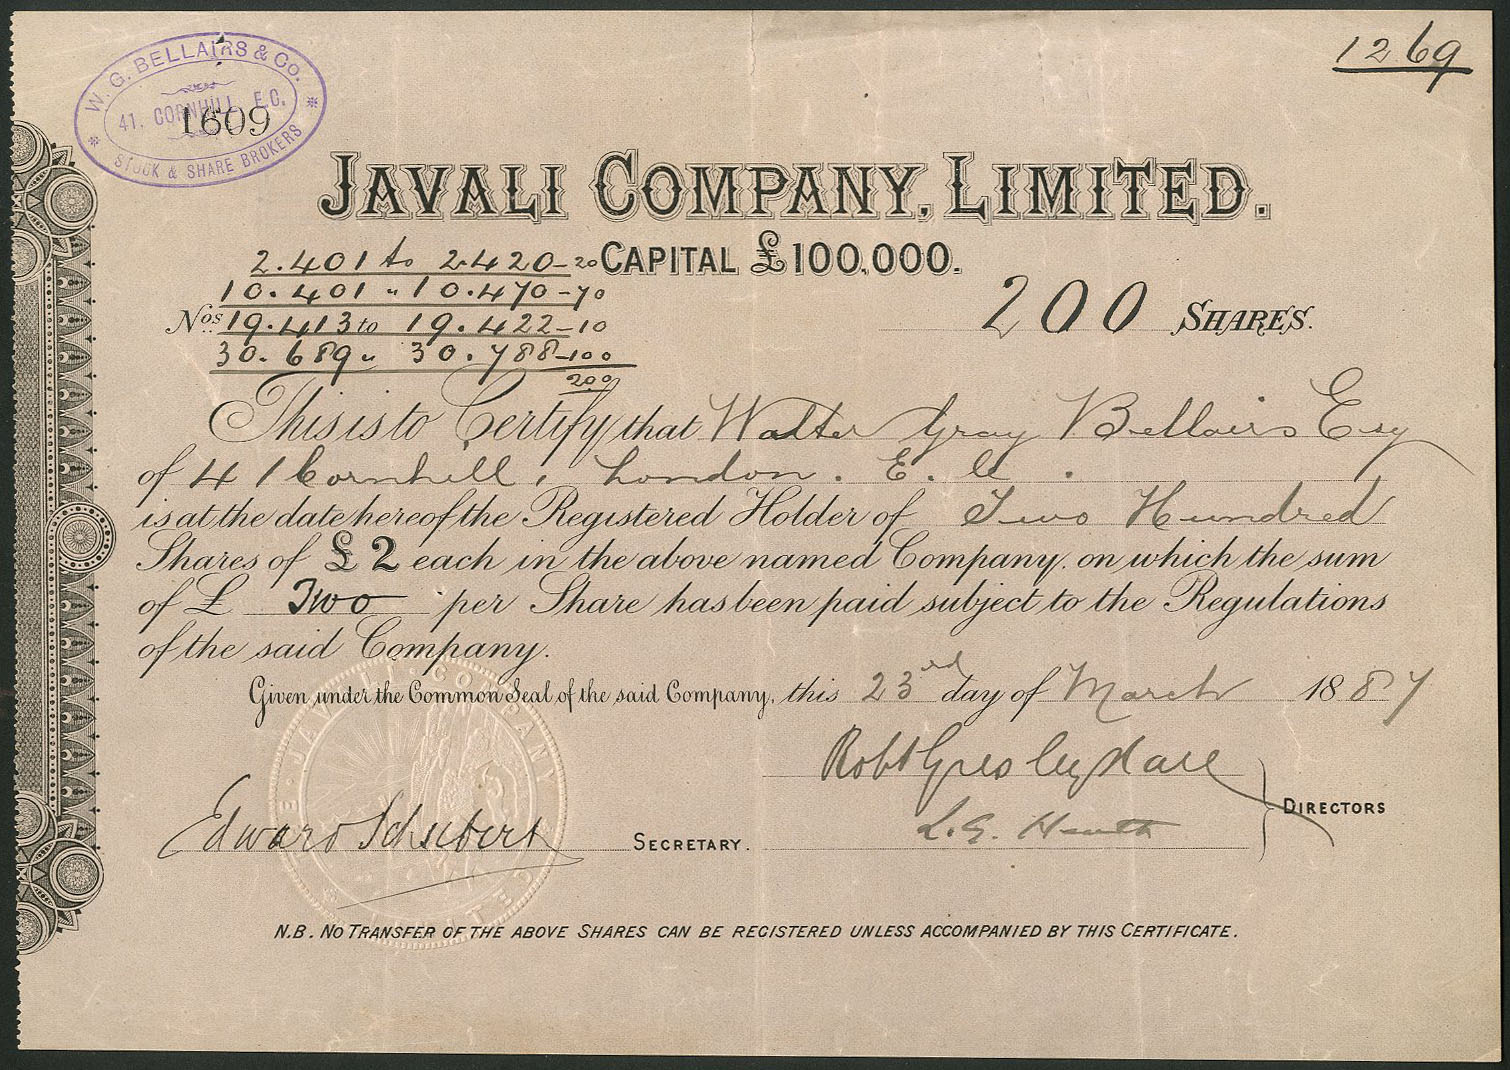 1269
W. G. BELLAIRS & Co.
41. CORNHILL, E.C.
1609
STOCK & SHARE BROKERS
JAVALI COMPANY, LIMITED.
CAPITAL £100,000.
2.401 to 2420-20
10.401 " 10.470-70
Nos 19.413 to 19.422-10
30.689 " 30.788-100
200
200 SHARES.
This is to Certify that Walter Gray Bellairs Esq
of 41 Cornhill, London. E. C.
is at the date hereof the Registered Holder of Two Hundred
Shares of £2 each in the above named Company, on which the sum
of £ Two per Share has been paid subject to the Regulations
of the said Company.
Given under the Common Seal of the said Company, this 23rd day of March 1887
JAVALI COMPANY LIMITED
Robt Gresley
L. G. Heath
DIRECTORS
Edward Schubert SECRETARY.
N.B. NO TRANSFER OF THE ABOVE SHARES CAN BE REGISTERED UNLESS ACCOMPANIED BY THIS CERTIFICATE.